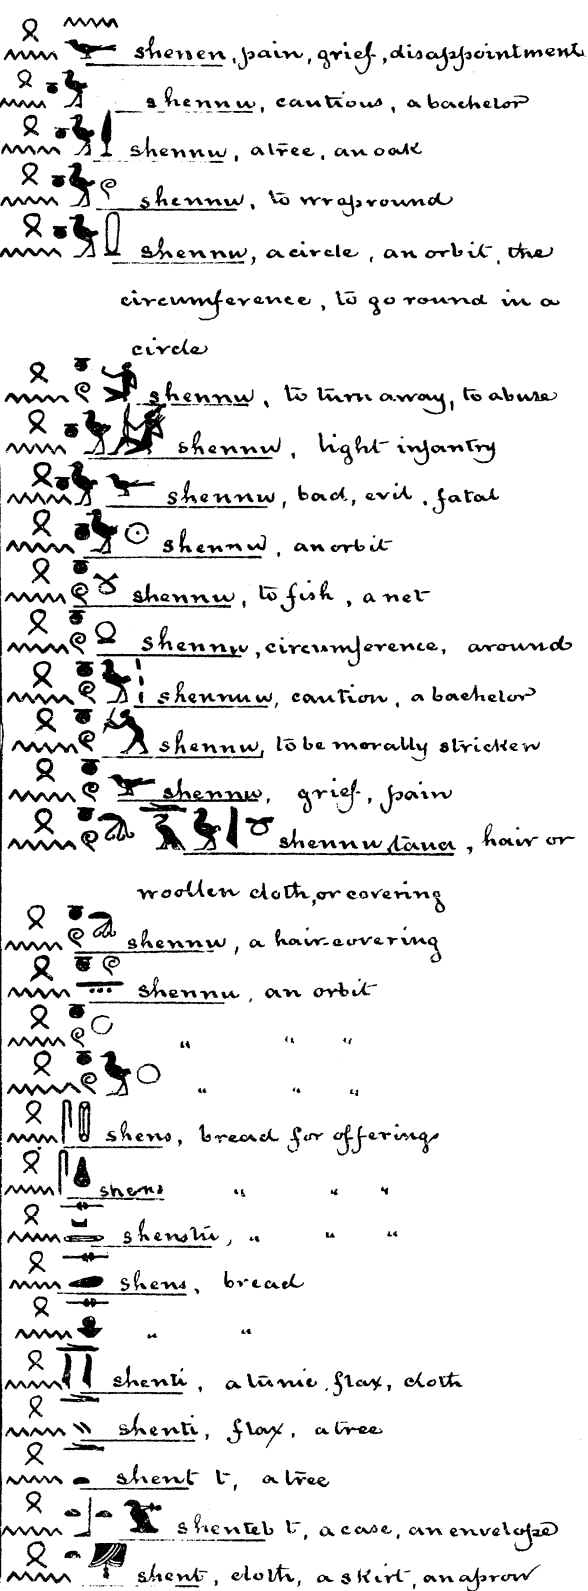 shenen, pain, grief, disappointment
shennu, cautious, a bachelor
shennu, a tree, an oak
shennu, to wrap round
shennu, a circle, an orbit, the
circumference, to go round in a
circle
shennu, to turn away, to abuse
shennu, light infantry
shennu, bad, evil, fatal
shennu, an orbit
shennu, to fish, a net
shennu, circumference, around
shennuu, caution, a bachelor
shennu, to be morally stricken
shennu, grief, pain
shennu taua, hair or
woollen cloth, or covering
shennu, a hair-covering
shennu, an orbit
„ „ „
„ „ „
shens, bread for offerings
shens „ „ „
shenstu, „ „ „
shens, bread
„ „
shenti, a tunic, flax, cloth
shenti, flax, a tree
shent t, a tree
shenteb t, a case, an envelope
shent, cloth, a skirt, an apron